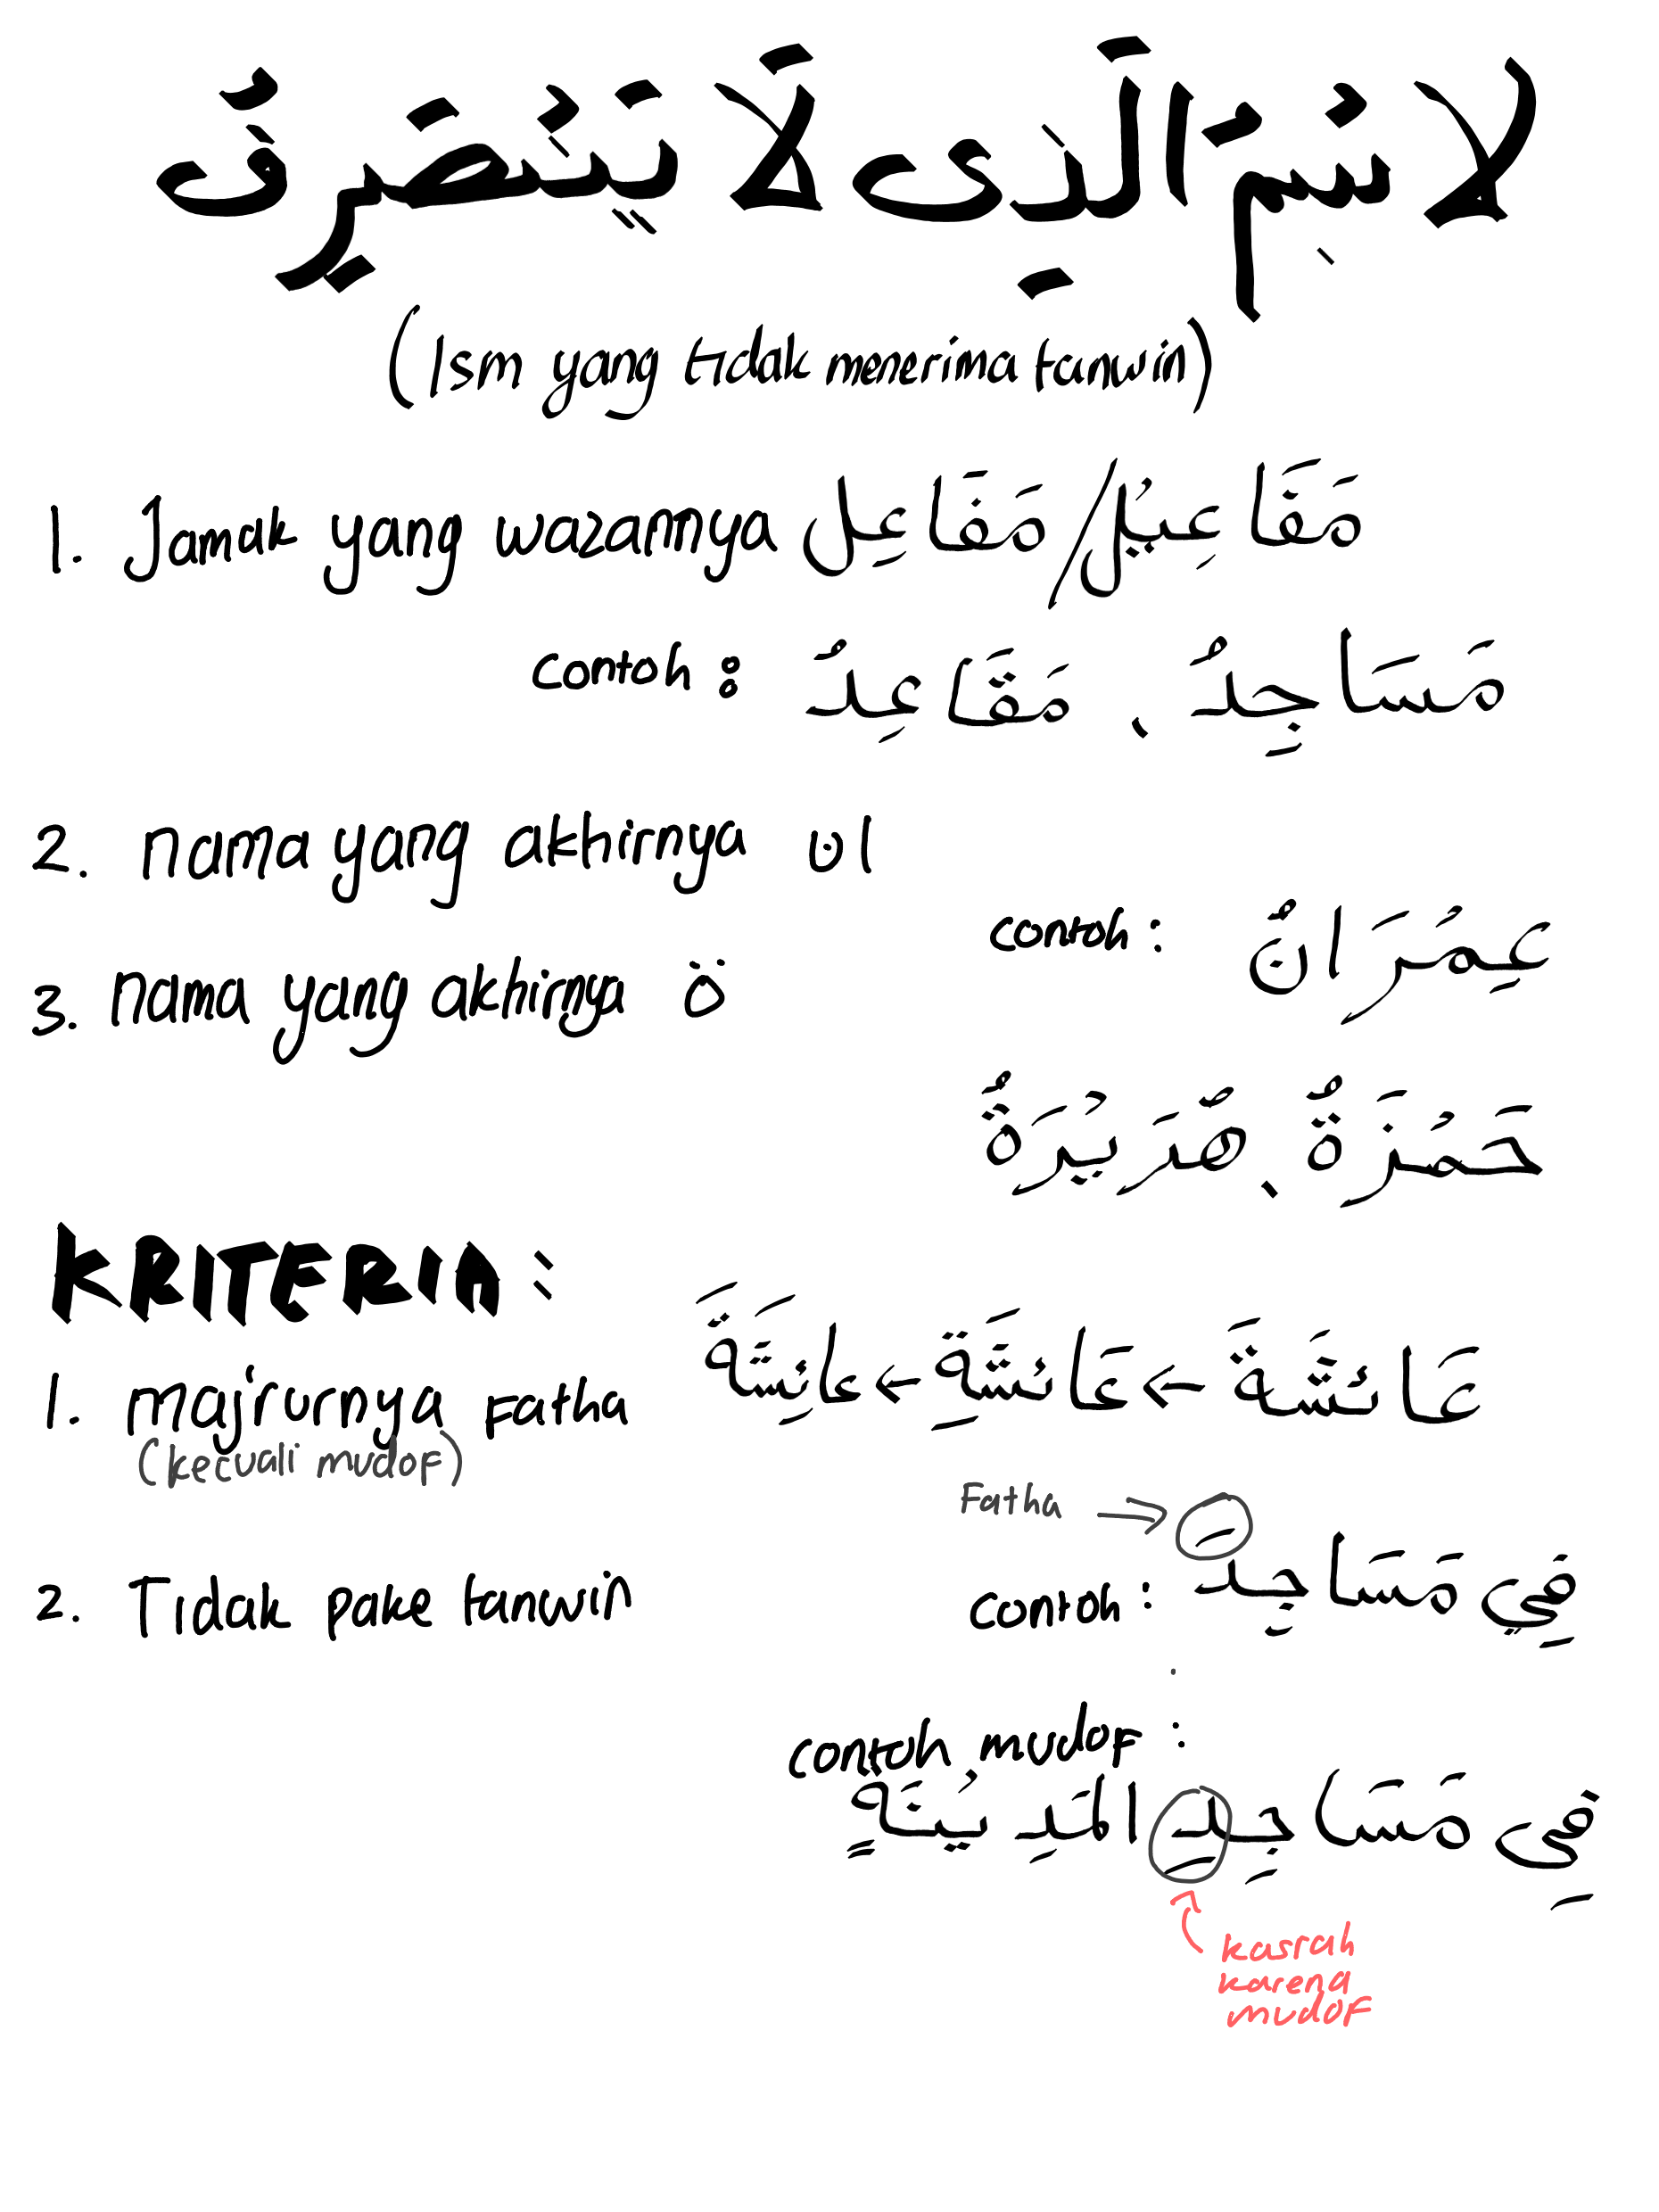 لاسْمُ الَّذِى لَا يَنْصَرِفُ
(Ism yang tidak menerima tanwin)
1. Jamak yang wazannya مَفَاعِل/مَفَاعِيْل
contoh : مَسَاجِدُ ، مَقَاعِدُ
2. nama yang akhirnya ان
contoh : عِمْرَانُ
3. nama yang akhirnya ة
حَمْزَةُ ، هُرَيْرَةُ
KRITERIA :
1. majrurnya fatha عَائشَةَ ← عَائشَةِ ← عائِشَةَ
(kecuali mudof)
Fatha →
2. Tidak pake tanwin
contoh : فِي مَسَاجِدَ
contoh mudof :
فِى مَسَاجِدِ المَدِيْنَةِ
kasrah
karena
mudof